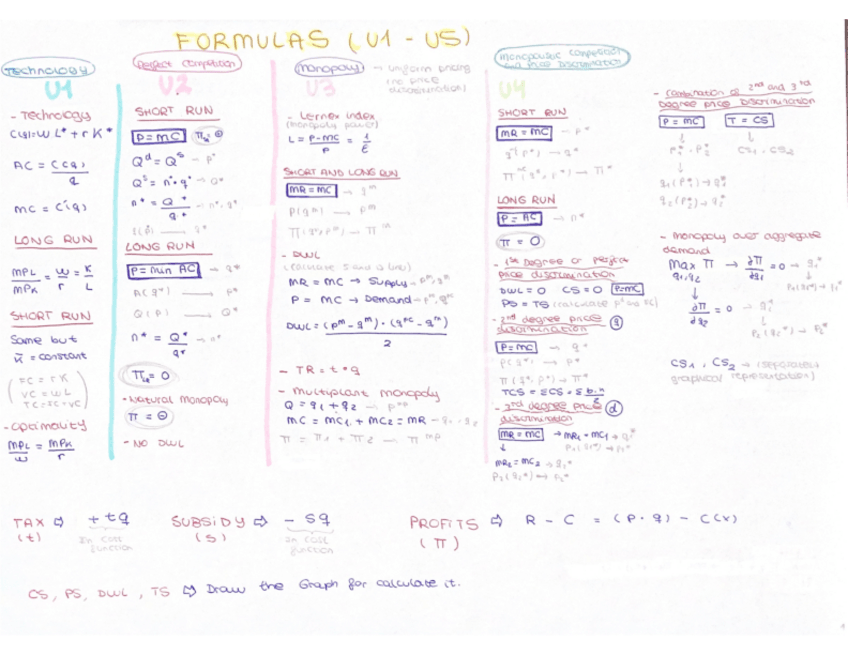 FORMULAS (U1 - U5)
Technology
U1
- Technology
C(q)=wL*+rK*
AC = C(q)
q
MC = C'(q)
LONG RUN
MPL = w = K
MPK r L
SHORT RUN
Same but
K̄ = constant
FC = rK
VC = wL
TC=FC+VC
- Optimality
MPL = MPK
w r
Perfect competition
U2
SHORT RUN
P = MC
Qd = Qs → P*
Qs = n*·q* → Q*
n* = Q*
q*
LONG RUN
P = min AC → q*
AC(q*) → P*
Q(P) → Q*
n* = Q* → n*
q*
= 0
- Natural monopoly
- NO DWL
Monopoly → Uniform pricing
(no price
discrimination)
U3
- Lerner index
(monopoly power)
L = P-MC = 1
P Ɛ
SHORT AND LONG RUN
MR = MC → qm
P(qm) → Pm
- DWL
MR = MC → Supply
P = MC → Demand
DWL = (Pm - qm) · (qPC - qm)
2
- TR = t · q
- Multiplant monopoly
Q = q1 + q2
MC = MC1 + MC2 = MR
π = π1 + π2
Monopolistic competition
and Price Discrimination
U4
SHORT RUN
MR = MC → P*
LONG RUN
P = AC → n*
π = 0
- 1st Degree or Perfect
price discrimination
DWL = 0 CS = 0 P=MC
PS = TS
- 2nd degree price
discrimination
P = MC → q*
P(q*) → P*
π(q*, P*) → π*
discrimination
MR = MC → MR1 = MC1 → q1*
P1(q1*) → P1*
MR2 = MC2 → q2*
P2(q2*) → P2*
- Combination of 2nd and 3rd
degree price discrimination
P = MC T = CS
P1*, P2* CS1, CS2
q1(P1*) → q1*
q2(P2*) → q2*
- Monopoly over aggregate
demand
Max π → ∂π = 0 → q1*
q1,q2 ∂q1
∂π = 0 → q2*
∂q2
P2(q2*) → P2*
CS1, CS2 → (separated
graphical representation)
TAX ⇨ + tq
(t) In cost
function
SUBSIDY ⇨ - sq
(s) In cost
function
PROFITS ⇨ R - C = (P · q) - C(x)
(π)
CS, PS, DWL, TS ⇨ Draw the Graph for calculate it.